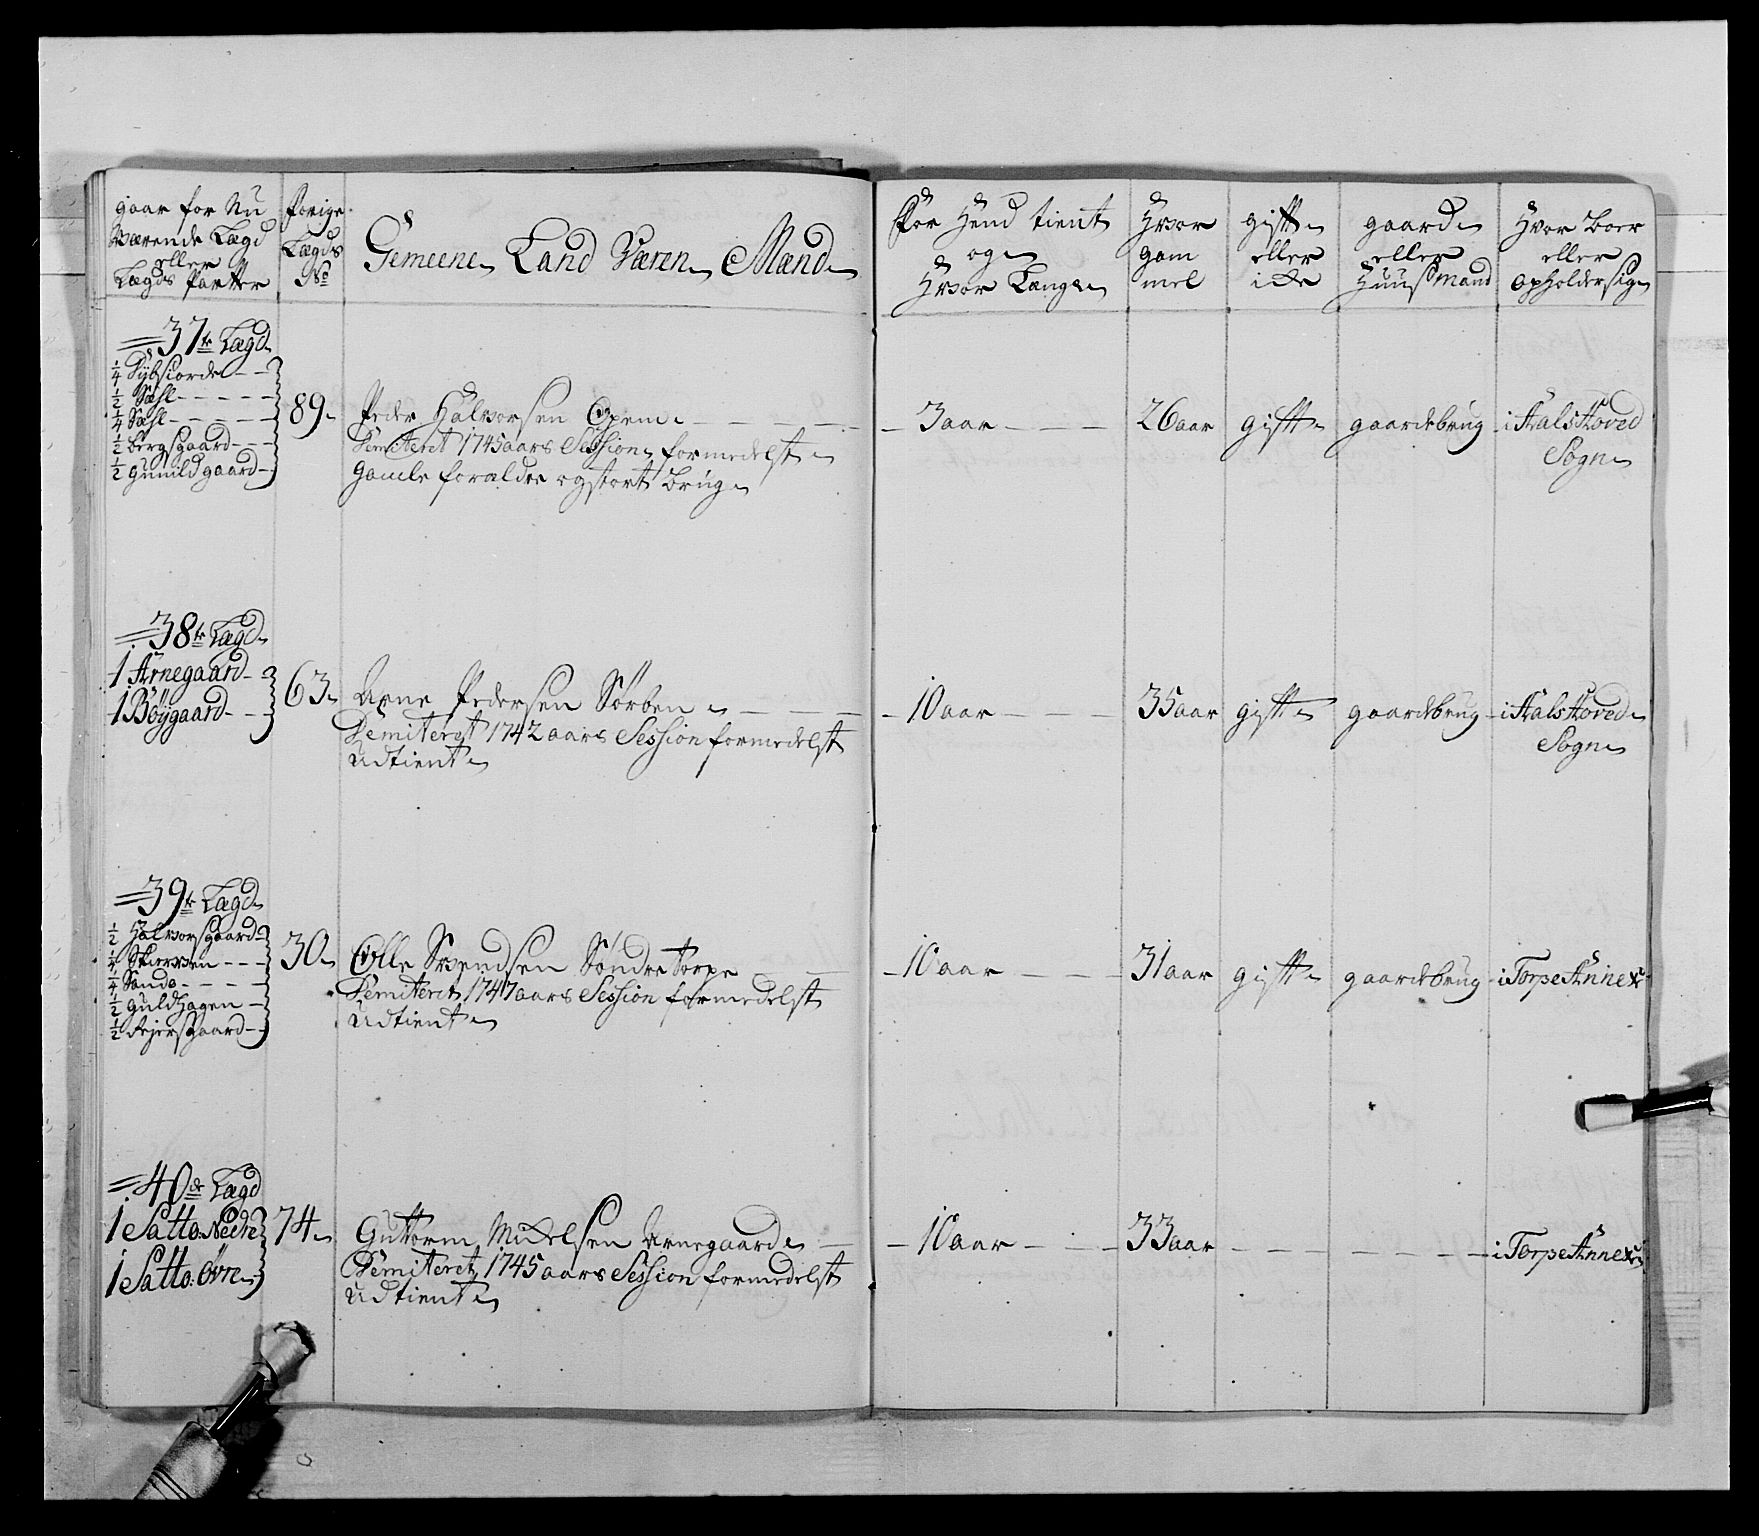 gaar for Nu
Værende Lægd
eller
Lægds Parter
Forige
Lægds
No
Gemeene Land Væren Mænd
For Hend tient
og
Hvor Længe
Hvor
gam
mel
gift
eller
icke
gaard
eller
Huusmand
Hvor Boer
eller
opholdersig
37te Lægd
1/4 Dybsiorde
1/2 Sæhl
1/4 Sæhl
1/2 Bergsgaard
1/2 Gunildgaard
89
Peder Halvorsen Opem
Demiteret 1745 aars Session formedelst
Gamle foraldre og stort brug
3 aar
26 aar
gift
gaardebrug
i Aals Hoved
Sogn
38te Lægd
1 Arnegaard
1 Böygaard
63
Arne Pedersen Sörben
Demiteret 1742 aars Session formedelst
Udtient
10 aar
35 aar
gift
gaardebrug
i Aals Hoved
Sogn
39te Lægd
1/2 Halvorsgaard
1/4 Skierven
1/4 Sando
1/2 Guldhagen
1/2 Rejersgaard
30
Olle Svendsen Söndre Torpe
Demiteret 1747 aars Session formedelst
Udtient
10 aar
31 aar
gift
gaardebrug
i Torpe Annex
40de Lægd
1 Satto: Nedre
1 Satto: Övre
74
Guttorm Mickelsen Arnegaard
Demiteret 1745 aars Session formedelst
Udtient
10 aar
33 aar
i Torpe Annex